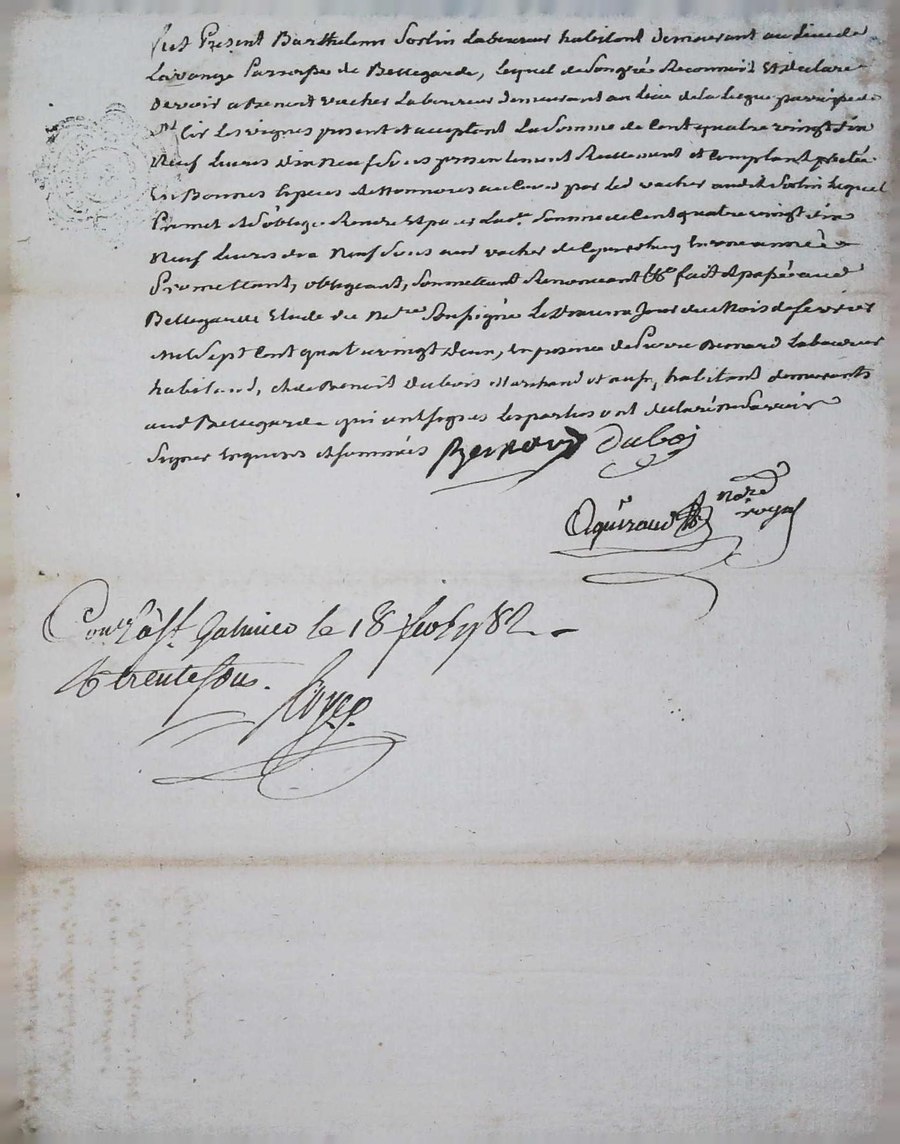 fut Présent Barthelemi Sorlin Laboureur habitant demeurant au Lieu de
Lavange Parroisse de Bellegarde, lequel de Son gré Reconnoit Et declare
Devoir a Benoit vacher Laboureur demeurant au lieu de la Liegue parroisse de
St Cir Les vignes present et acceptant La Somme de Cent quatre vingt dix
Neuf Livres dix Neuf Sous presentement Reellement et Comptant pretée
En Bonnes Especes et Monnoies au Cours par led vacher audit Sorlin Lequel
Promet et S'oblige Rendre Et payer Lad. Somme de Cent quatre vingt dix
Neuf Livres dix Neuf Sous aud vacher de Cejourdhuy En une année
Promettant, obligeant, Soumettant Renonceant &c fait et passé aud
Bellegarde Etude du Nore Soussigné Le Jour du Mois de fevrier
Mil Sept Cent quatre vingt deux, En presence de Pierre Bernard Laboureur
habitand, et de Benoit dubois Marchand habitant demeurants
aud Bellegarde qui ont signes les parties ont declaré ne Savoir
Signer Enquises et sommées Bernard Duboi
nore
royal
Conlé à St. Galmier le 18 fev 1782
R trente sous.